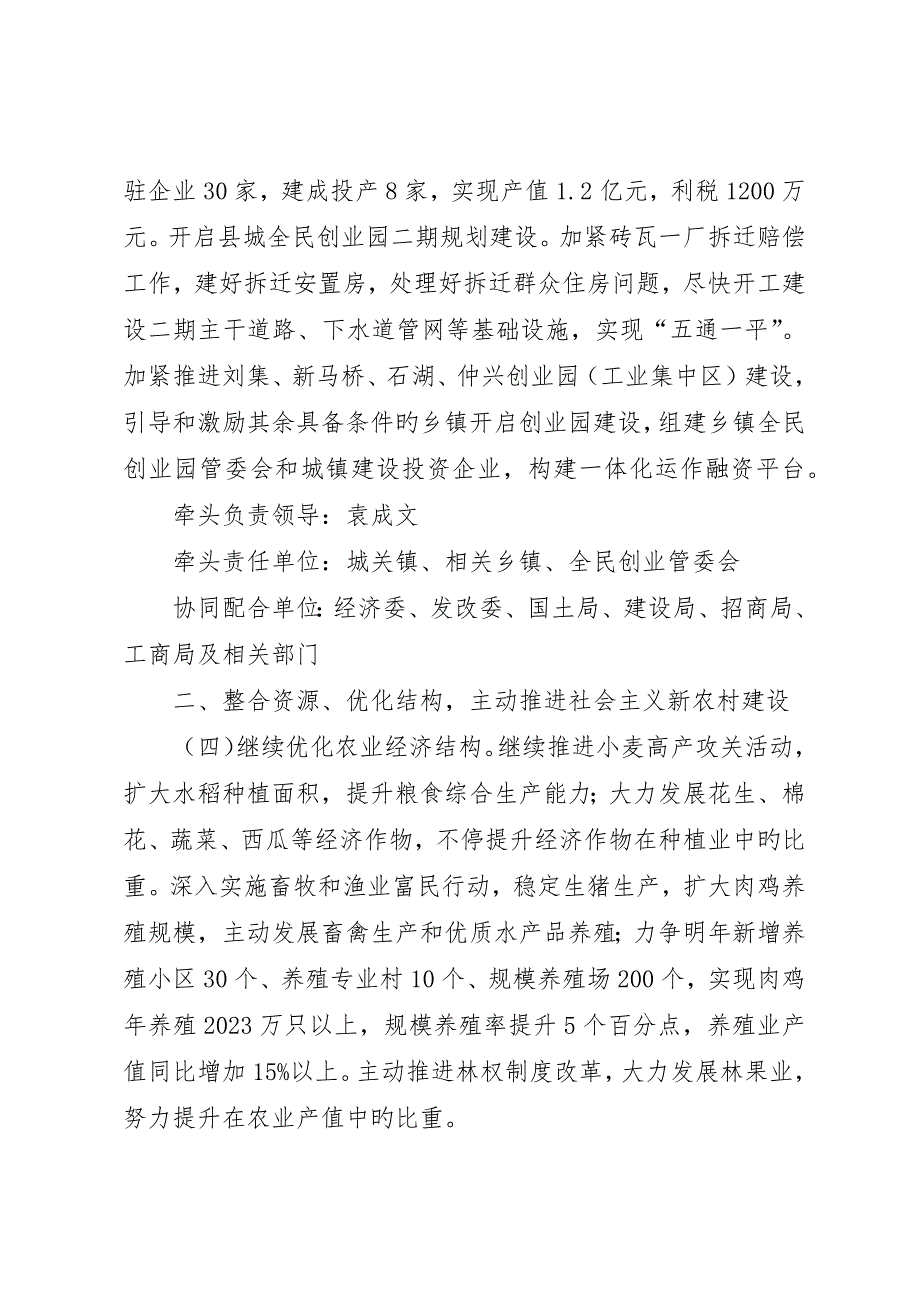 驻企业 30 家，建成投产 8 家，实现产值 1.2 亿元，利税 1200 万
元。开启县城全民创业园二期规划建设。加紧砖瓦一厂拆迁赔偿
工作，建好拆迁安置房，处理好拆迁群众住房问题，尽快开工建
设二期主干道路、下水道管网等基础设施，实现“五通一平”。
加紧推进刘集、新马桥、石湖、仲兴创业园（工业集中区）建设，
引导和激励其余具备条件旳乡镇开启创业园建设，组建乡镇全民
创业园管委会和城镇建设投资企业，构建一体化运作融资平台。
牵头负责领导：袁成文
牵头责任单位：城关镇、相关乡镇、全民创业管委会
协同配合单位：经济委、发改委、国土局、建设局、招商局、
工商局及相关部门
二、整合资源、优化结构，主动推进社会主义新农村建设
（四）继续优化农业经济结构。继续推进小麦高产攻关活动，
扩大水稻种植面积，提升粮食综合生产能力；大力发展花生、棉
花、蔬菜、西瓜等经济作物，不停提升经济作物在种植业中旳比
重。深入实施畜牧和渔业富民行动，稳定生猪生产，扩大肉鸡养
殖规模，主动发展畜禽生产和优质水产品养殖；力争明年新增养
殖小区 30 个、养殖专业村 10 个、规模养殖场 200 个，实现肉鸡
年养殖 2023 万只以上，规模养殖率提升 5 个百分点，养殖业产
值同比增加 15%以上。主动推进林权制度改革，大力发展林果业，
努力提升在农业产值中旳比重。